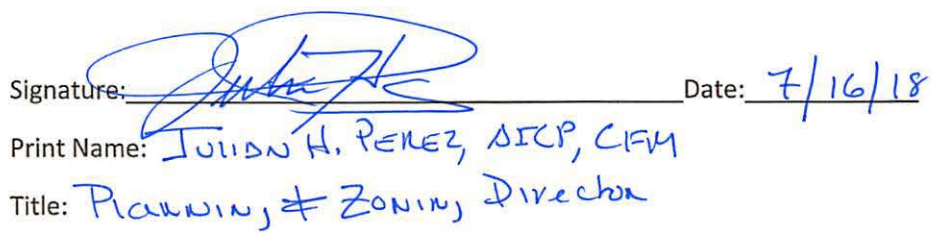 Signature: Date: 7/16/18
Print Name: JULIAN H. PEREZ, AICP, CFM
Title: Planning & Zoning Director